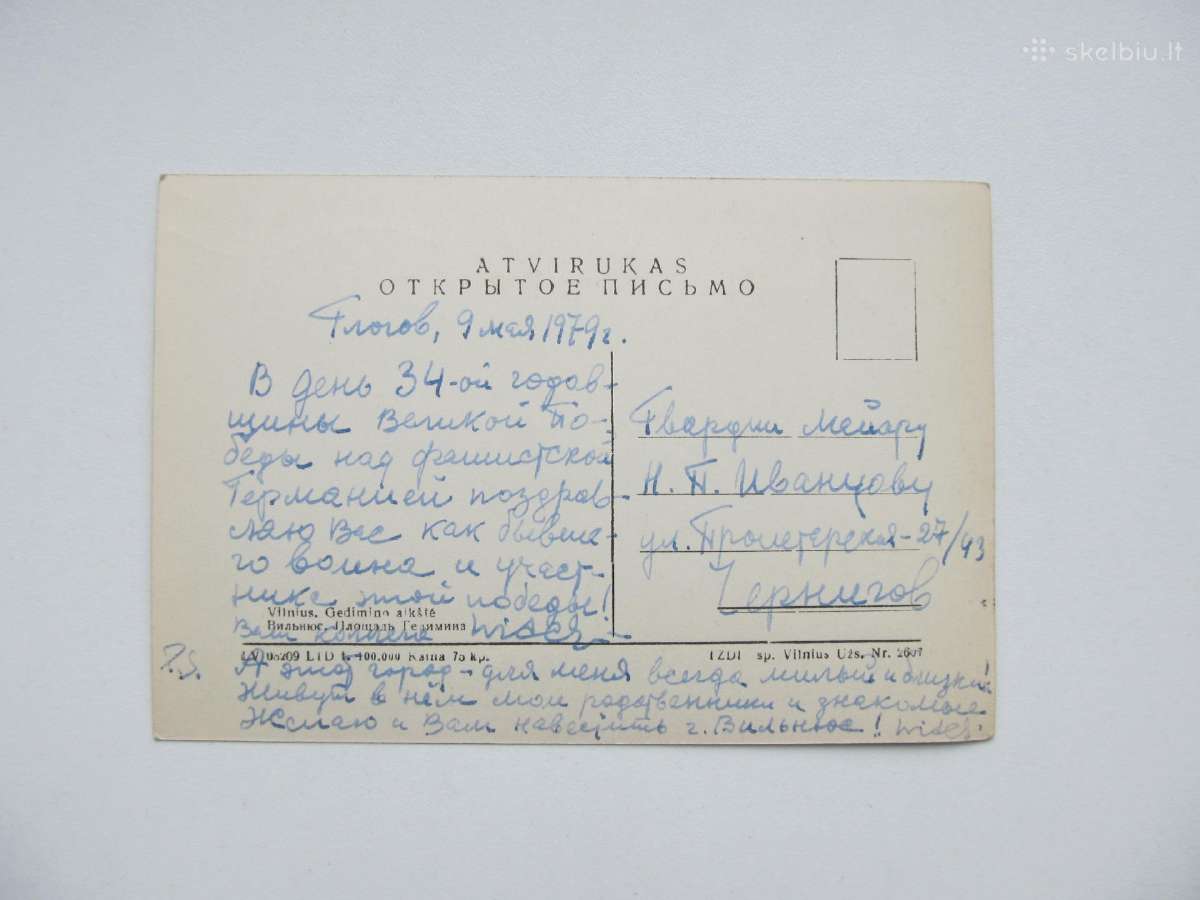 skelbiu.lt
ATVIRUKAS
ОТКРЫТОЕ ПИСЬМО
Глогов, 9 мая 1979г.
В день 34-ой годов-
щины Великой По-
беды над фашистской
Германией поздрав-
ляю Вас как бывше-
го воина и участ-
ника этой победы!
Vilnius. Gedimino aikštė
Вильнюс. Площадь Гедимина
Ваш коллега
Гвардии майору
Н. П. Иванцову
ул. Пролетарская-27/43
Чернигов
LTD t. 400.000 Kaina 75 kp.
IZDI sp. Vilnius Užs. Nr. 2607
P.S. А этот город - для меня всегда милый и близкий!
Живут в нём мои родственники и знакомые
Желаю и Вам навестить г. Вильнюс!